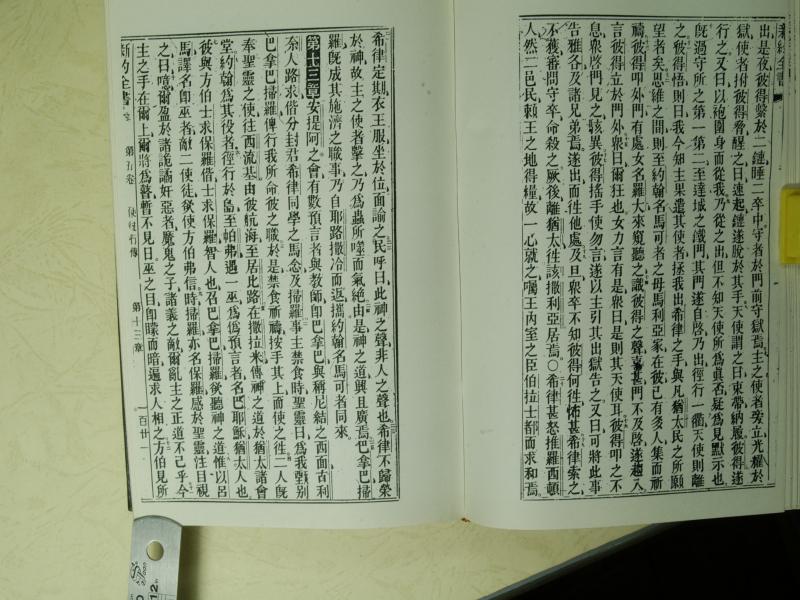 新約全書
出是夜彼得繫於二鏈睡二卒中守者於門前守獄焉主之使者爰立光耀於
獄使者拊彼得脅醒之曰速起鏈遂脫於其手天使謂之曰束帶納履彼得遂
行之又曰以袍圍身而從我乃從之出但不知天使所爲眞否疑爲見默示也
旣過守所之第一第二至達城之鐵門其門遂自啓乃出徑行一衢天使則離
之彼得悟則曰我今知主果遣其使者拯我出希律之手與凡猶太民之所願
望者矣思維之間則至約翰名馬可者之母馬利亞家在彼已有多人集而祈
禱彼得叩外門有處女名羅大來窺聽之識彼得之聲喜甚門不及啓遂趨入
言彼得立於門外衆曰爾狂也女力言有是衆曰是則其天使耳彼得叩之不
息衆啓門見之駭異彼得搖手使勿言遂以主引其出獄告之又曰可將此事
告雅各及諸兄弟焉遂出而徃他處及旦衆卒不知彼得何徃怖甚希律索之
不獲審問守卒命殺之厥後離猶太徃該撒利亞居焉○希律甚怒推羅西頓
人然二邑民賴王之地得糧故一心就之囑王內室之臣伯拉士都而求和焉
希律定期衣王服坐於位面諭之民呼曰此神之聲非人之聲也希律不歸榮
於神故主之使者擊之乃爲蟲所噬而氣絕由是神之道興且廣焉巴拿巴掃
羅旣成其施濟之職事乃自耶路撒冷而返攜約翰名馬可者同來
第十三章安提阿之會有數預言者與敎師卽巴拿巴與稱尼結之西面古利
奈人路求偕分封君希律同學之馬念及掃羅事主禁食時聖靈曰爲我甄別
巴拿巴掃羅俾行我所命彼之職於是禁食祈禱按手其上而使之徃二人旣
奉聖靈之使徃西流基由彼航海至居比路在撒拉米傳神之道於猶太諸會
堂約翰爲其役者徑行於島至帕弗遇一巫爲僞預言者名巴耶穌猶太人也
彼與方伯士求保羅偕士求保羅智人也召巴拿巴掃羅欲聽神之道惟以呂
馬譯名卽巫者敵二使徒欲使方伯弗信時掃羅亦名保羅感於聖靈注目視
之曰噫爾盈於諸詭譎奸惡者魔鬼之子諸義之敵爾亂主之正道不已乎今
主之手在爾上爾將爲瞽暫不見日巫之目卽矇而暗遍求人相之方伯見所
新約全書 第五卷 使徒行傳 第十三章 一百廿一